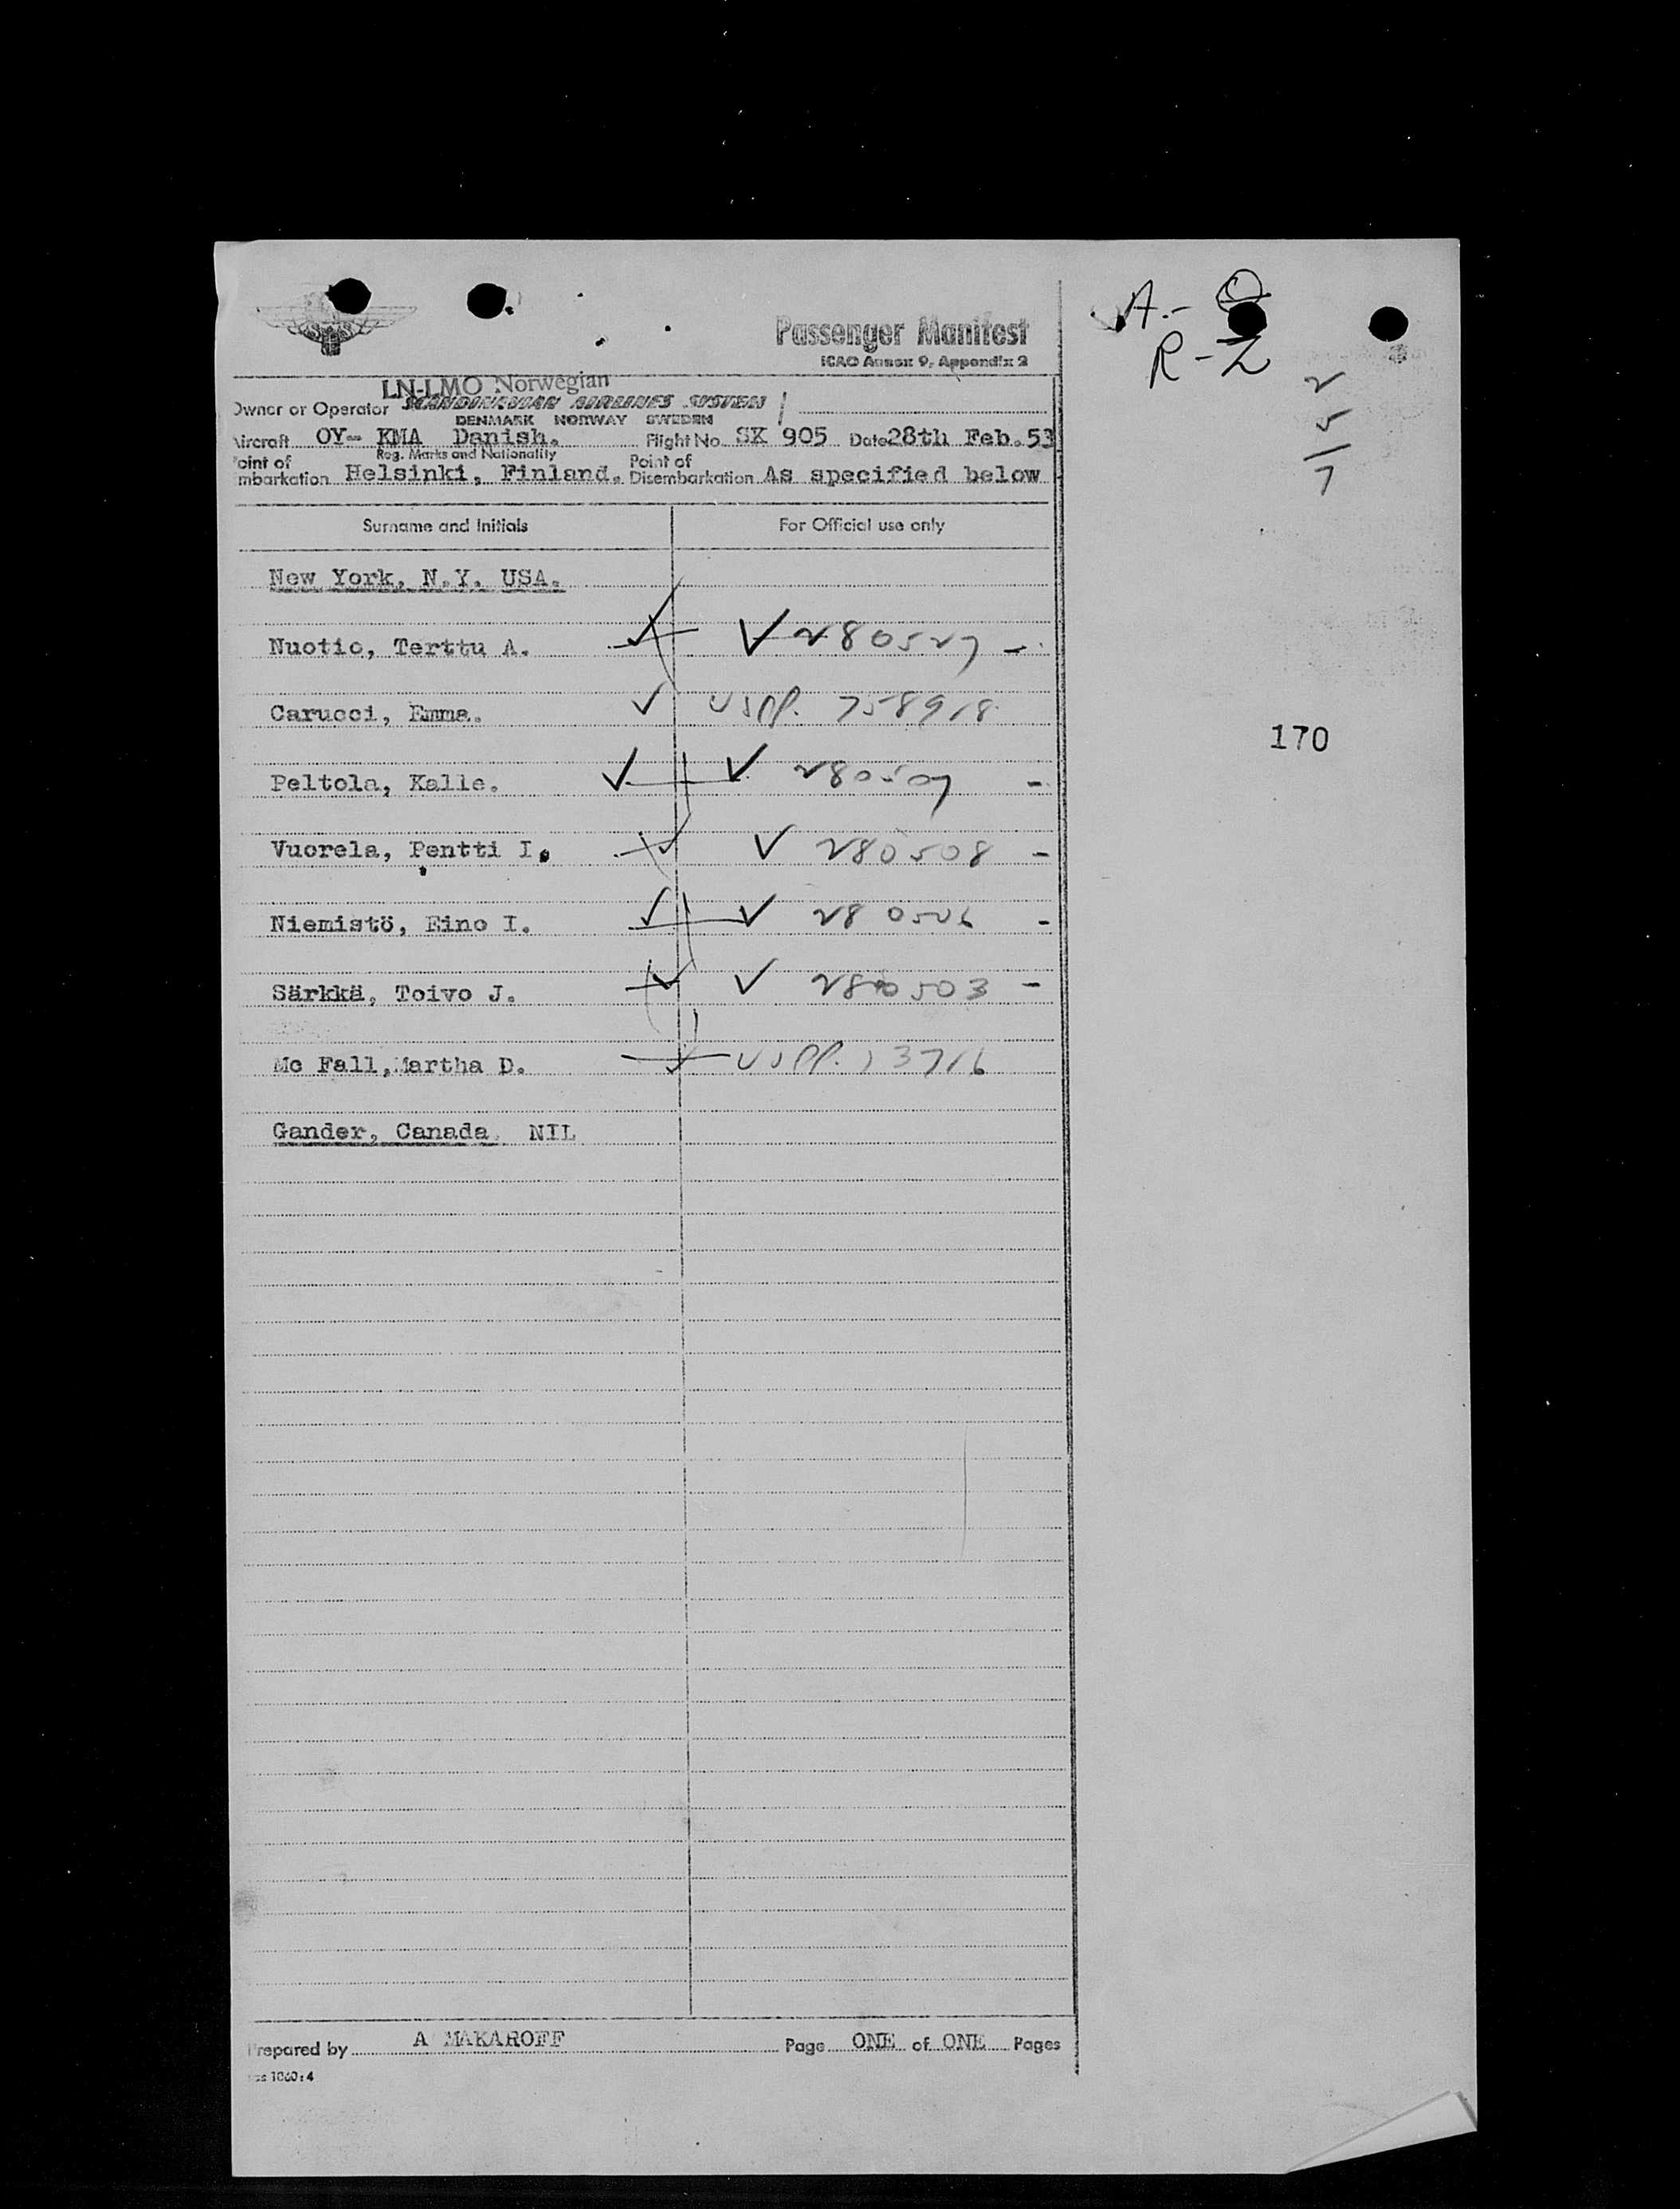 A.- Q
R-Z
Passenger Manifest
ICAO Annex 9, Appendix 2
2
5
7
LN-LMO Norwegian
Owner or Operator SCANDINAVIAN AIRLINES SYSTEM
DENMARK NORWAY SWEDEN
Aircraft OY-- KMA Danish. Flight No. SK 905 Date 28th Feb. 53
Reg. Marks and Nationality
Point of mbarkation Helsinki, Finland. Point of Disembarkation As specified below
Surname and Initials For Official use only
New York, N.Y. USA.
Nuotio, Terttu A. ✓ ✓ 280527 -
Carucci, Emma. ✓ USPP. 758918
170
Peltola, Kalle. ✓ ✓ 280507 -
Vuorela, Pentti I. ✓ ✓ 280508 -
Niemistö, Eino I. ✓ ✓ 280506 -
Särkkä, Toivo J. ✓ ✓ 280503 -
Mc Fall,Martha D. ✓ USPP. 13716
Gander, Canada. NIL
Prepared by A MAKAROFF Page ONE of ONE Pages
1060:4